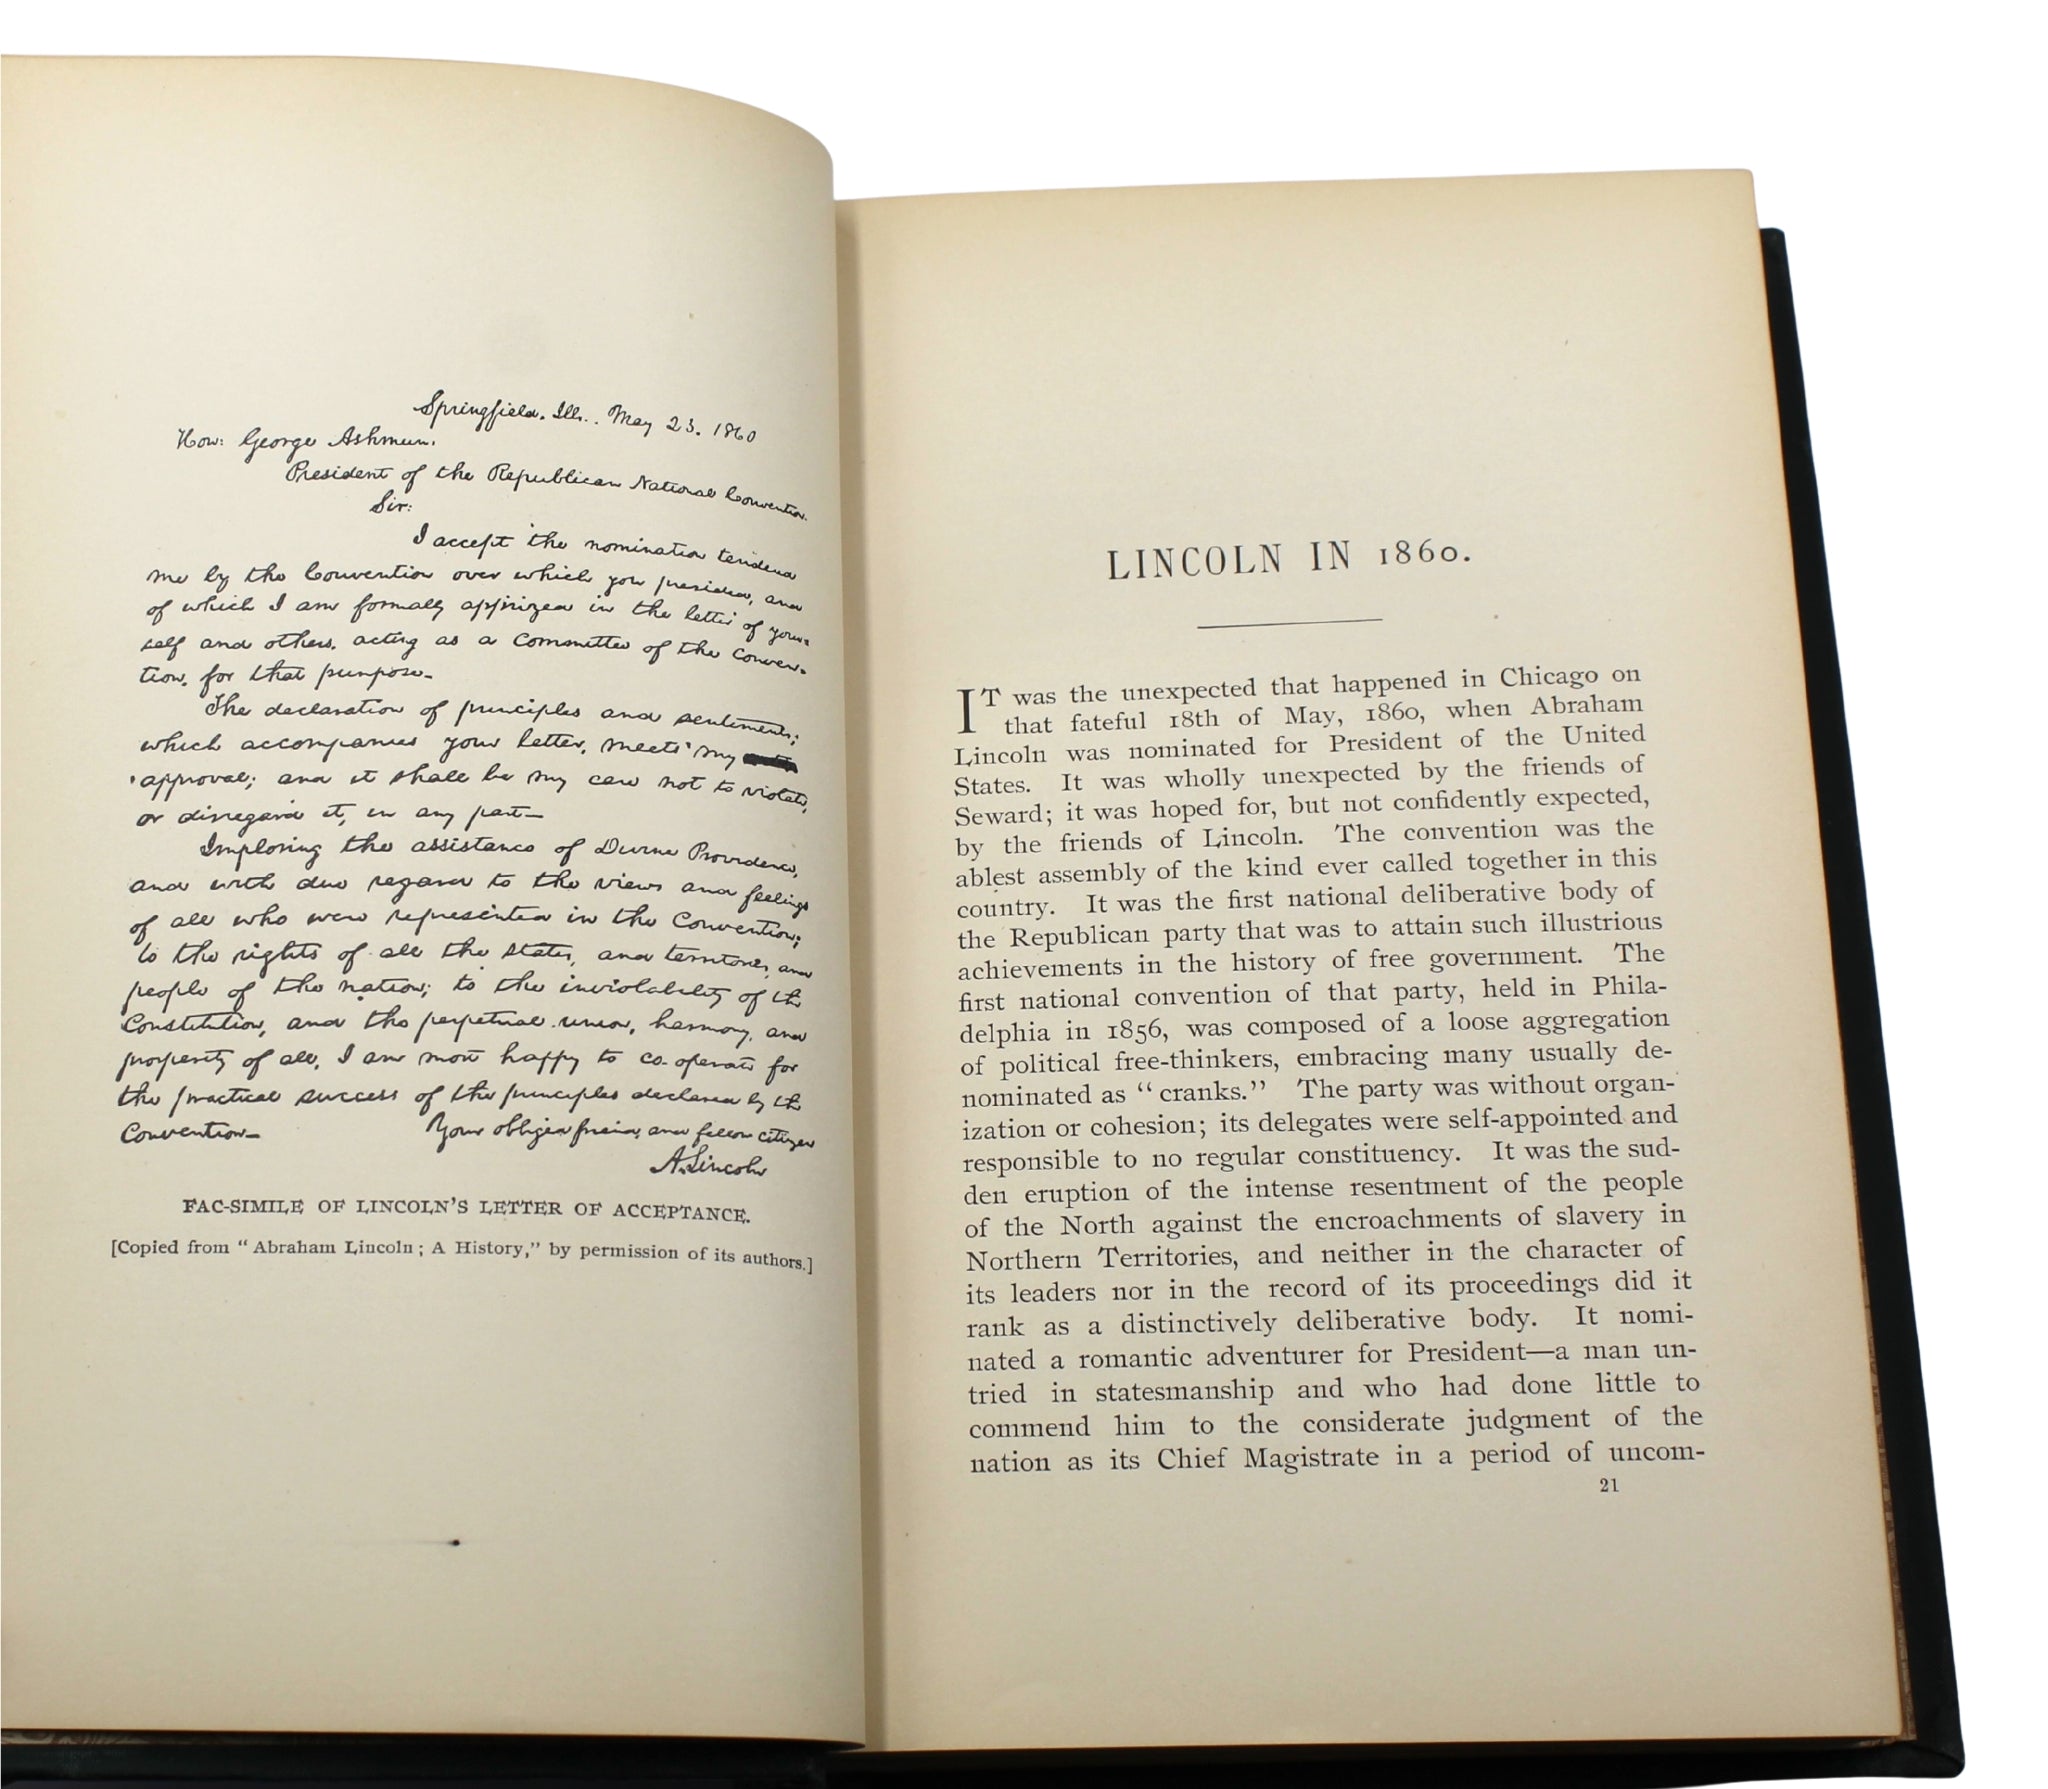 Springfield, Ills., May 23, 1860
Hon: George Ashmun,
President of the Republican National Convention.
Sir:
I accept the nomination tendered
me by the Convention over which you presided, and
of which I am formally apprized in the letter of your-
self and others, acting as a committee of the conven-
tion, for that purpose—
The declaration of principles and sentiments,
which accompanies your letter, meets my
approval; and it shall be my care not to violate,
or disregard it, in any part—
Imploring the assistance of Divine Providence,
and with due regard to the views and feelings
of all who were represented in the Convention;
to the rights of all the states, and territories, and
people of the nation; to the inviolability of the
Constitution, and the perpetual union, harmony, and
prosperity of all, I am most happy to co-operate for
the practical success of the principles declared by the
Convention—
Your obliged friend, and fellow citizen
A. Lincoln
FAC-SIMILE OF LINCOLN'S LETTER OF ACCEPTANCE.
[Copied from "Abraham Lincoln; A History," by permission of its authors.]
LINCOLN IN 1860.
IT was the unexpected that happened in Chicago on
that fateful 18th of May, 1860, when Abraham
Lincoln was nominated for President of the United
States. It was wholly unexpected by the friends of
Seward; it was hoped for, but not confidently expected,
by the friends of Lincoln. The convention was the
ablest assembly of the kind ever called together in this
country. It was the first national deliberative body of
the Republican party that was to attain such illustrious
achievements in the history of free government. The
first national convention of that party, held in Phila-
delphia in 1856, was composed of a loose aggregation
of political free-thinkers, embracing many usually de-
nominated as "cranks." The party was without organ-
ization or cohesion; its delegates were self-appointed and
responsible to no regular constituency. It was the sud-
den eruption of the intense resentment of the people
of the North against the encroachments of slavery in
Northern Territories, and neither in the character of
its leaders nor in the record of its proceedings did it
rank as a distinctively deliberative body. It nomi-
nated a romantic adventurer for President—a man un-
tried in statesmanship and who had done little to
commend him to the considerate judgment of the
nation as its Chief Magistrate in a period of uncom-
21